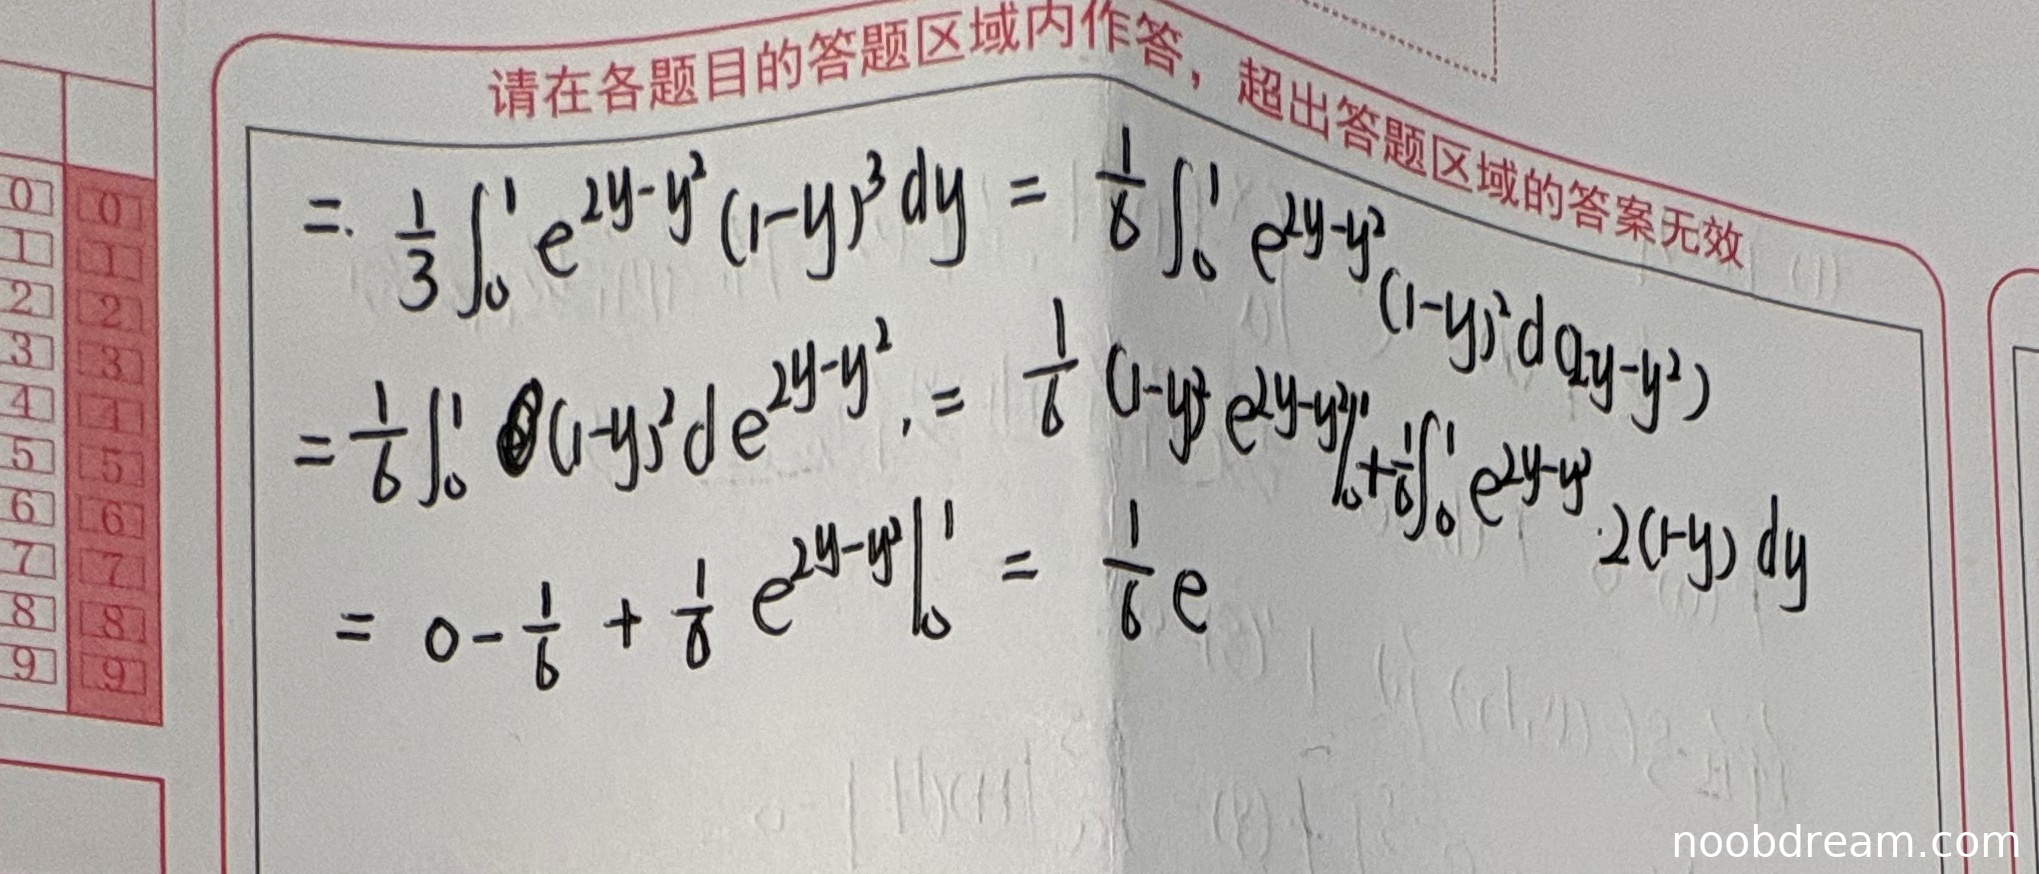 请在各题目的答题区域内作答，超出答题区域的答案无效
0 0
1 1
2 2
3 3
4 4
5 5
6 6
7 7
8 8
9 9
= \frac{1}{3} ∫_0^1 e^{2y-y²} (1-y)³ dy = \frac{1}{6} ∫_0^1 e^{2y-y²} (1-y)² d(2y-y²)
= \frac{1}{6} ∫_0^1 (1-y)² d e^{2y-y²} = \frac{1}{6} (1-y)² e^{2y-y²} |_0^1 + \frac{1}{6} ∫_0^1 e^{2y-y²} · 2(1-y) dy
= 0 - \frac{1}{6} + \frac{1}{6} e^{2y-y²} |_0^1 = \frac{1}{6} e
noobdream.com